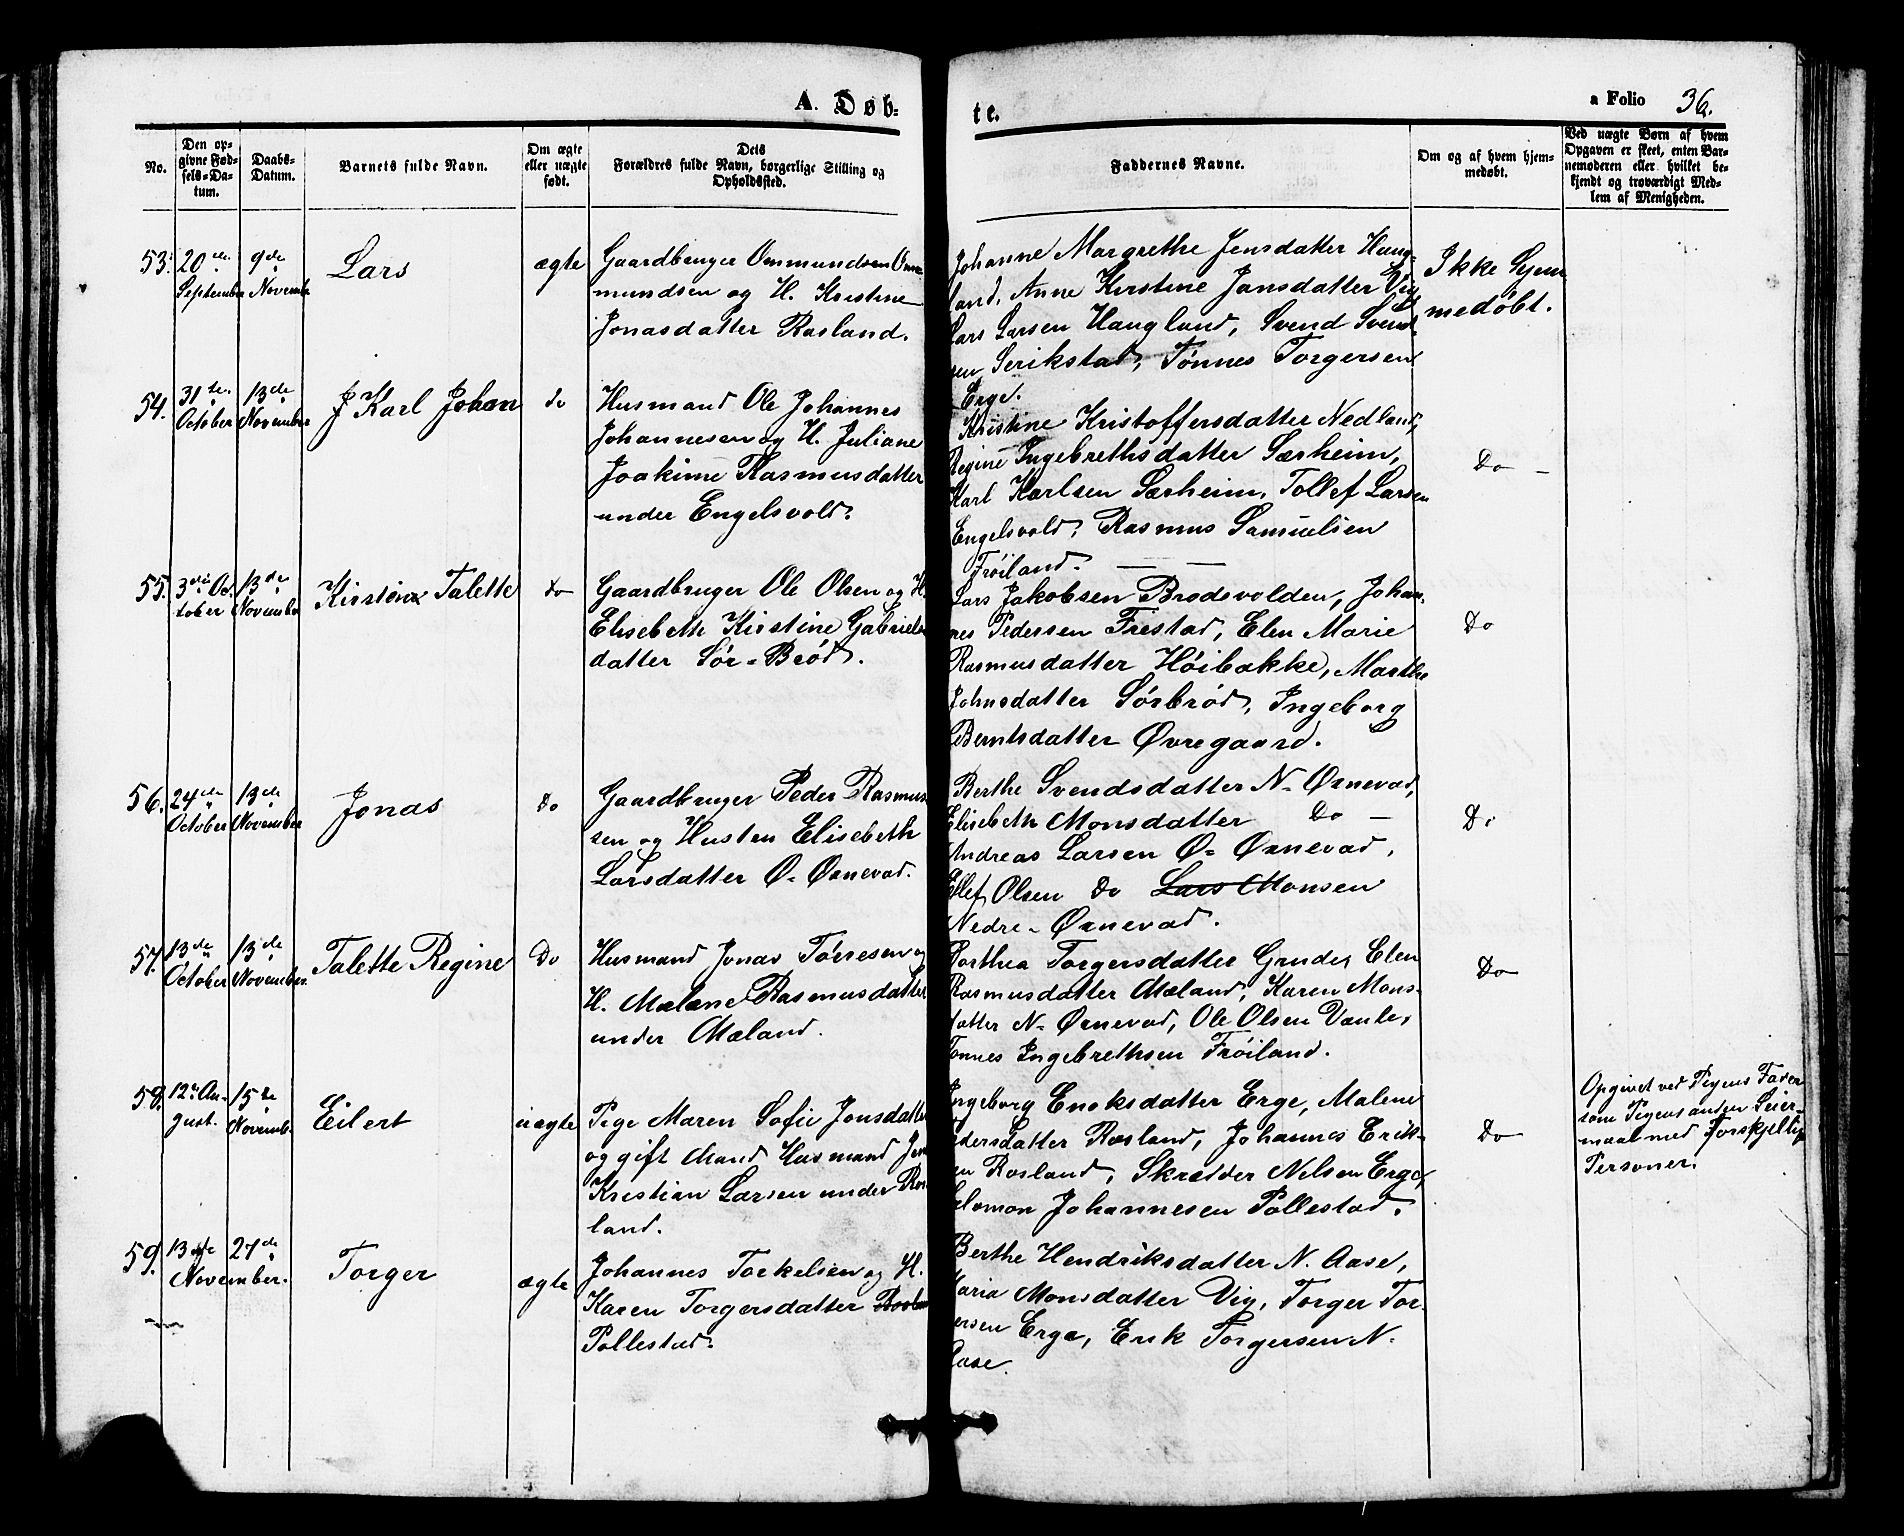 A. Døb-
te.
a Folio 36.
No.
Den op-
givne Fød-
sels-Da-
tum.
Daabs-
Datum.
Barnets fulde Navn.
Om ægte
eller uægte
født.
Dets
Forældres fulde Navn, borgerlige Stilling og
Opholdssted.
Faddernes Navne.
Om og af hvem hjem-
medøbt.
Ved uægte Børn af hvem
Opgaven er skeet, enten Bar-
nemoderen eller hvilket be-
kjendt og troværdigt Med-
lem af Menigheden.
53.
20de
September
9de
Novemb.
Lars
ægte
Gaardbruger Ommundsen Om-
mundsen og H. Kristine
Jonasdatter Rosland.
Johanne Margrethe Jensdatter Haug-
land, Anne Kirstine Jansdatter Vig
Lars Larsen Haugland, Svend Svend-
sen Serikstad, Tønnes Torgersen
Erge.
Ikke hjem
medøbt.
54.
31te
October
13de
November
J Karl Johan
do
Husmand Ole Johannes
Johannesen og H. Juliane
Joakime Rasmusdatter
under Engelsvold.
Kristine Kristoffersdatter Nedland,
Regine Ingebrethsdatter Særheim,
Karl Karlsen Særheim, Tollef Larsen
Engelsvold, Rasmus Samuelsen
Frøiland. — —
Do —
55.
3die Oc-
tober
13de
November
Kirstine Talette
Do
Gaardbruger Ole Olsen og H.
Elisebeth Kirstine Gabriels-
datter Sør-Brød.
Lars Jakobsen Brodsvolden, Johan-
nes Pedersen Frestad, Elen Marie
Rasmusdatter Høibakke, Marthe
Johnsdatter Sørbrød, Ingeborg
Berntsdatter Øvregaard.
Do
56.
24de
October
13de
November
Jonas
Do
Gaardbruger Peder Rasmus-
sen og Hustru Elisebeth
Larsdatter Ø. Ørnevad.
Berthe Svendsdatter N- Ørnevad,
Elisebeth Monsdatter Do —
Andreas Larsen Ø- Ørnevad,
Ellef Olsen Do Lars Monsen
Nedre-Ørnevad.
Do
57.
13de
October
13de
November
Talette Regine
Do
Husmand Jonas Tørresen og
H. Malene Rasmusdatter
under Mæland.
Dorthea Torgersdatter Grude, Elen
Rasmusdatter Mæland, Karen Mons-
datter N- Ørnevad, Ole Olsen Vanle,
Tønnes Ingebrethsen Frøiland.
Do
58.
12te Au-
gust.
15de
Novemb.
Eilert
uægte
Pige Maren Sofie Jonsdatter
og gift Mand Husmand Jens
Kristian Larsen under Ros-
land.
Ingeborg Enoksdatter Erge, Malene
Pedersdatter Rosland, Johannes Erik-
sen Rosland, Skredder Nilsen Erge,
Salomon Johannesen Pollestad.
Do
Opgivet ved Pigens Fader
som Pigens anden Leier-
maal med Forskjellig
Personer.
59.
13de
November.
27de
Torger
ægte
Johannes Torkelsen og H.
Karen Torgersdatter
Pollestad.
Berthe Hendriksdatter N. Aase,
Maria Monsdatter Vig, Torger Tor-
gersen Erge, Erik Torgersen N.
Aase.